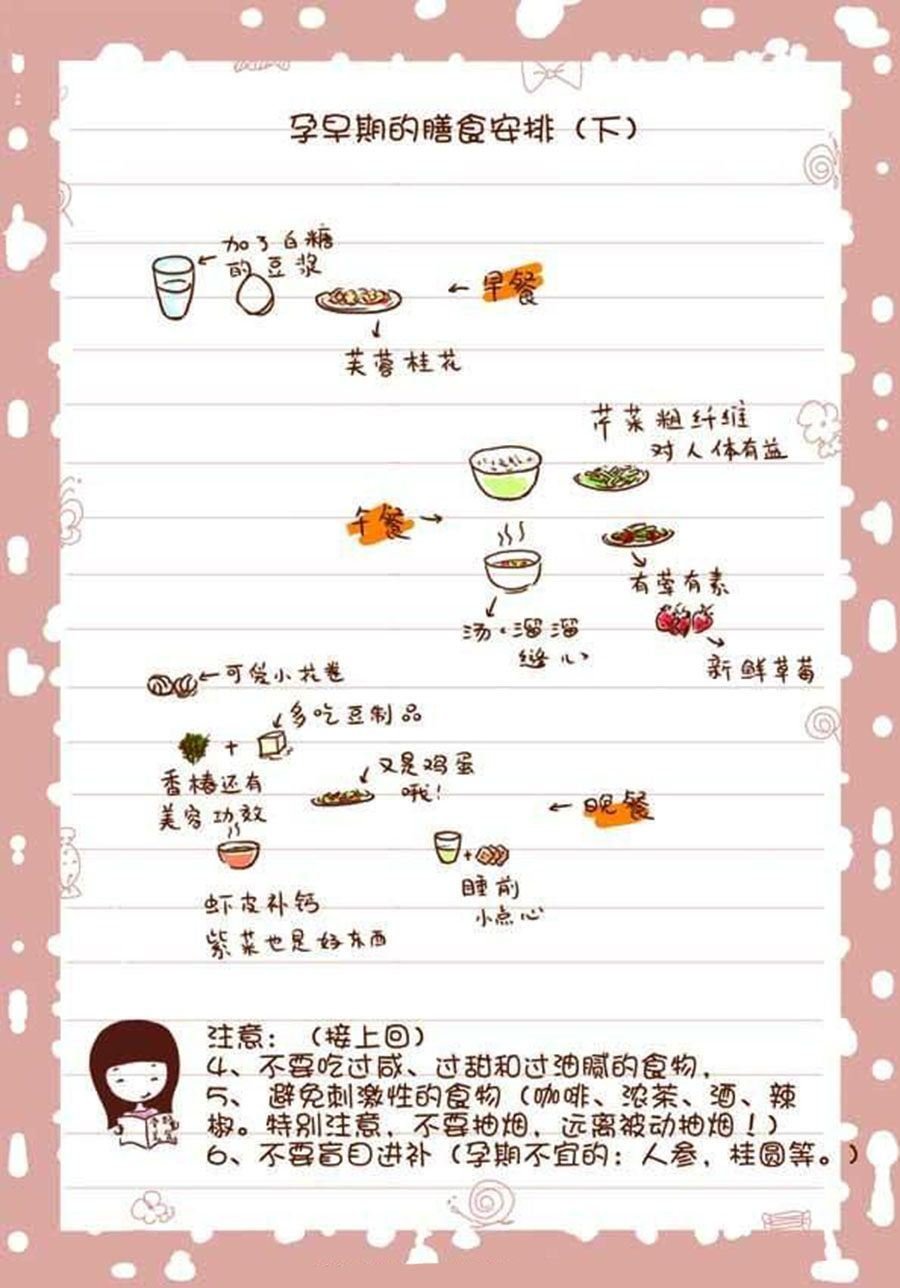 孕早期的膳食安排（下）
加了白糖
的豆浆
早餐
芙蓉桂花
芹菜粗纤维
对人体有益
午餐
有荤有素
汤，溜溜
缝儿
新鲜草莓
可爱小花卷
多吃豆制品
香椿还有
美容功效
又是鸡蛋
哦！
晚餐
睡前
小点心
虾皮补钙
紫菜也是好东西
注意：（接上回）
4、不要吃过咸、过甜和过油腻的食物，
5、 避免刺激性的食物（咖啡、浓茶、酒、辣
椒。特别注意，不要抽烟，远离被动抽烟！）
6、不要盲目进补（孕期不宜的：人参，桂圆等。）